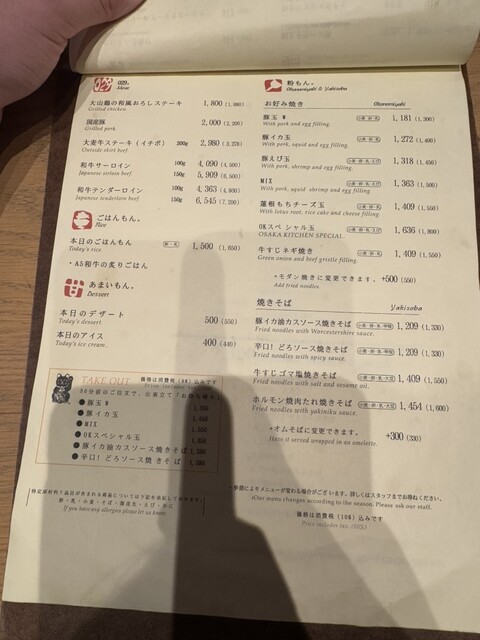 029.
Meat
大山鶏の和風おろしステーキ 1,800 (1,980)
Grilled chicken.
国産豚 2,000 (2,200)
Grilled pork.
大麦牛ステーキ（イチボ） 200g 2,980 (3,278)
Outside skirt beef.
和牛サーロイン 100g 4,090 (4,500)
Japanese sirloin beef. 150g 5,909 (6,500)
和牛テンダーロイン 100g 4,363 (4,800)
Japanese tenderloin beef. 150g 6,545 (7,200)
ごはんもん。
Rice
本日のごはんもん 1,500 (1,650)
Today's rice.
・A5和牛の炙りごはん
あまいもん。
Dessert
本日のデザート 500 (550)
Today's dessert.
本日のアイス 400 (440)
Today's ice cream.
TAKE OUT 価格は消費税（8%）込みです
●豚玉 W
●豚イカ玉
●MIX
●OKスペシャル玉
●豚イカ油カスソース焼きそば
●辛口！どろソース焼きそば
If you have any allergies please let us know.
粉もん。
Okonomiyaki & Yakisoba
お好み焼き Okonomiyaki
豚玉 W 1,181 (1,300)
With pork and egg filling.
豚イカ玉 1,272 (1,400)
With pork, squid and egg filling.
豚えび玉 1,318 (1,450)
With pork, shrimp and egg filling.
MIX 1,363 (1,500)
With pork, squid shrimp and egg filling.
蓮根もちチーズ玉 1,409 (1,550)
With lotus root, rice cake and cheese filling.
OKスペシャル玉 1,636 (1,800)
OSAKA KITCHEN SPECIAL.
牛すじネギ焼き 1,409 (1,550)
Green onion and beef gristle filling.
+モダン焼きに変更できます。 +500 (550)
Add fried noodles.
焼きそば Yakisoba
豚イカ油カスソース焼きそば 1,209 (1,330)
Fried noodles with Worcestershire sauce.
辛口！どろソース焼きそば 1,209 (1,330)
Fried noodles with spicy sauce.
牛すじゴマ塩焼きそば 1,409 (1,550)
Fried noodles with salt and sesame oil.
ホルモン焼肉たれ焼きそば 1,454 (1,600)
Fried noodles with yakiniku sauce.
+オムそばに変更できます。 +300 (330)
Have it served wrapped in an omelette.
・季節によりメニューが変わる場合がございます。詳しくはスタッフまでお尋ねください。
Our menu changes according to the season. Please ask our staff.
価格は消費税（10%）込みです
Price includes tax.（10%）